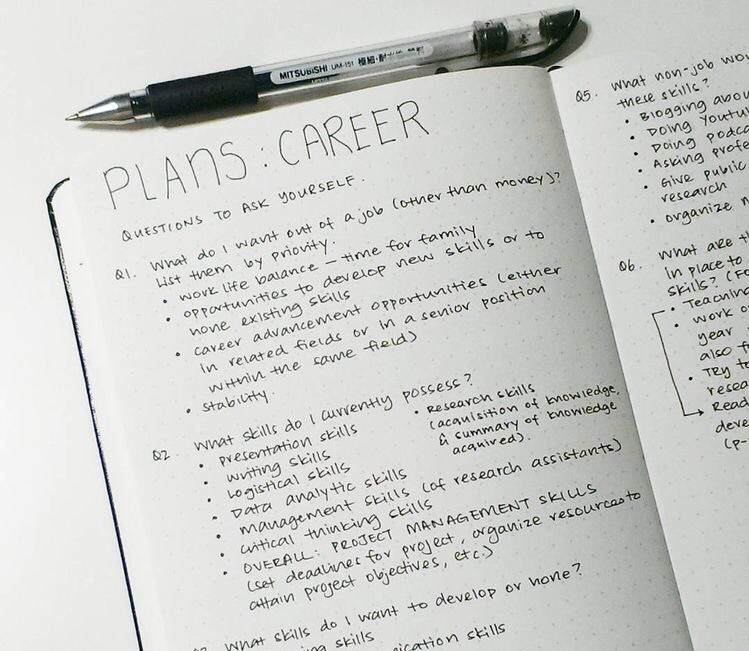 MITSUBISHI UM-151
PLANS: CAREER
QUESTIONS TO ASK YOURSELF.
Q1. What do I want out of a job (other than money)?
List them by priority.
• work life balance – time for family
• opportunities to develop new skills or to
hone existing skills
• career advancement opportunities (either
in related fields or in a senior position
within the same field)
• stability.
Q2. What skills do I currently possess?
• presentation skills
• writing skills
• logistical skills
• Data analytic skills
• management skills (of research assistants)
• critical thinking skills
• OVERALL: PROJECT MANAGEMENT SKILLS
(set deadlines for project, organize resources to
attain project objectives, etc.)
• Research skills
(acquisition of knowledge,
& summary of knowledge
acquired).
What skills do I want to develop or hone?
skills
skills
Q5. What non-job
these skills?
• Blogging
• Doing
• Doing
• Asking
• Give public
research
• organize
Q6. What are
in place to
skills?
• Teaching
• work
year
also
• Try
• Read